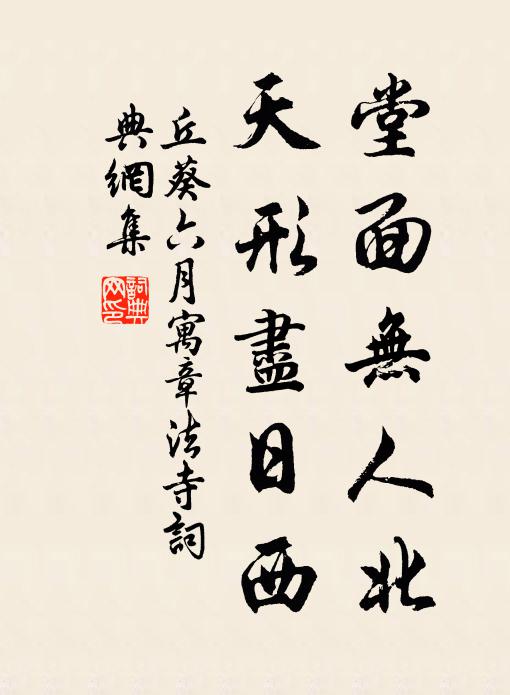 堂面無人北
天形盡日西
丘葵六月寓章法寺詞
典網集
詞典
网印